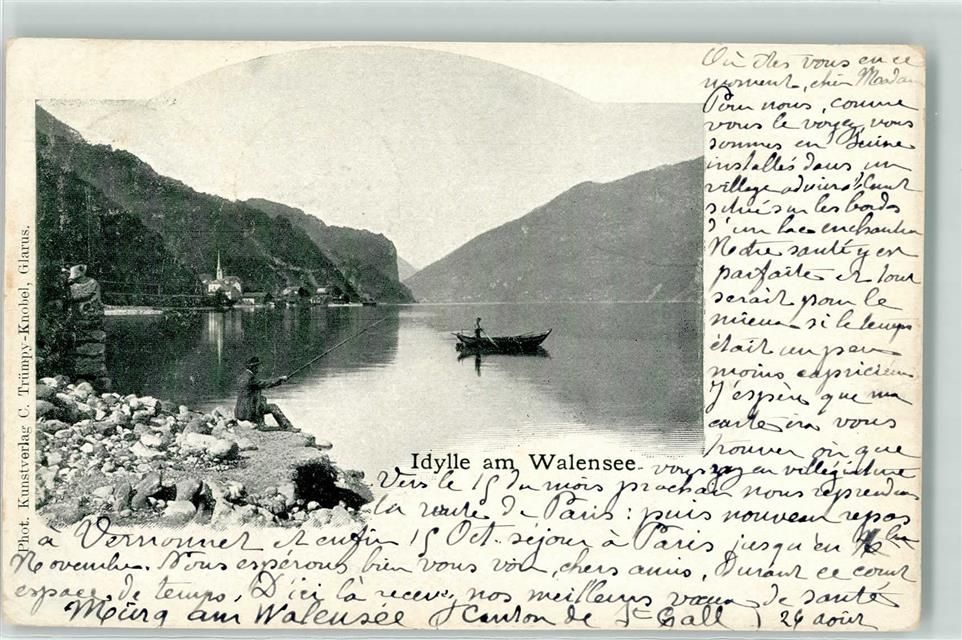 Où êtes vous en ce
moment, cher Madame
Pour nous, comme
vous le voyez, vous
sommes en Suisse
installés dans un
village
situé sur les bords
d'un lac enchanteur
Notre santé y est
parfaite et tout
serait pour le
mieux si le temps
était un peu
moins capricieux
J'espère que ma
carte ira vous
trouver où que
vous soyez en villégiature
Vers le 15 du mois prochain nous reprendrons
la route de Paris : puis nouveau repos
à Vernonnet et enfin 15 Oct. séjour à Paris jusqu'en
Novembre. Nous espérons bien vous voir, chers amis, durant ce court
espace de temps. D'ici là recevez nos meilleurs vœux de santé
Mürg am Walensée (Canton de St Gall) 26 août
Idylle am Walensee
Phot. Kunstverlag C. Trümpy-Knobel, Glarus.